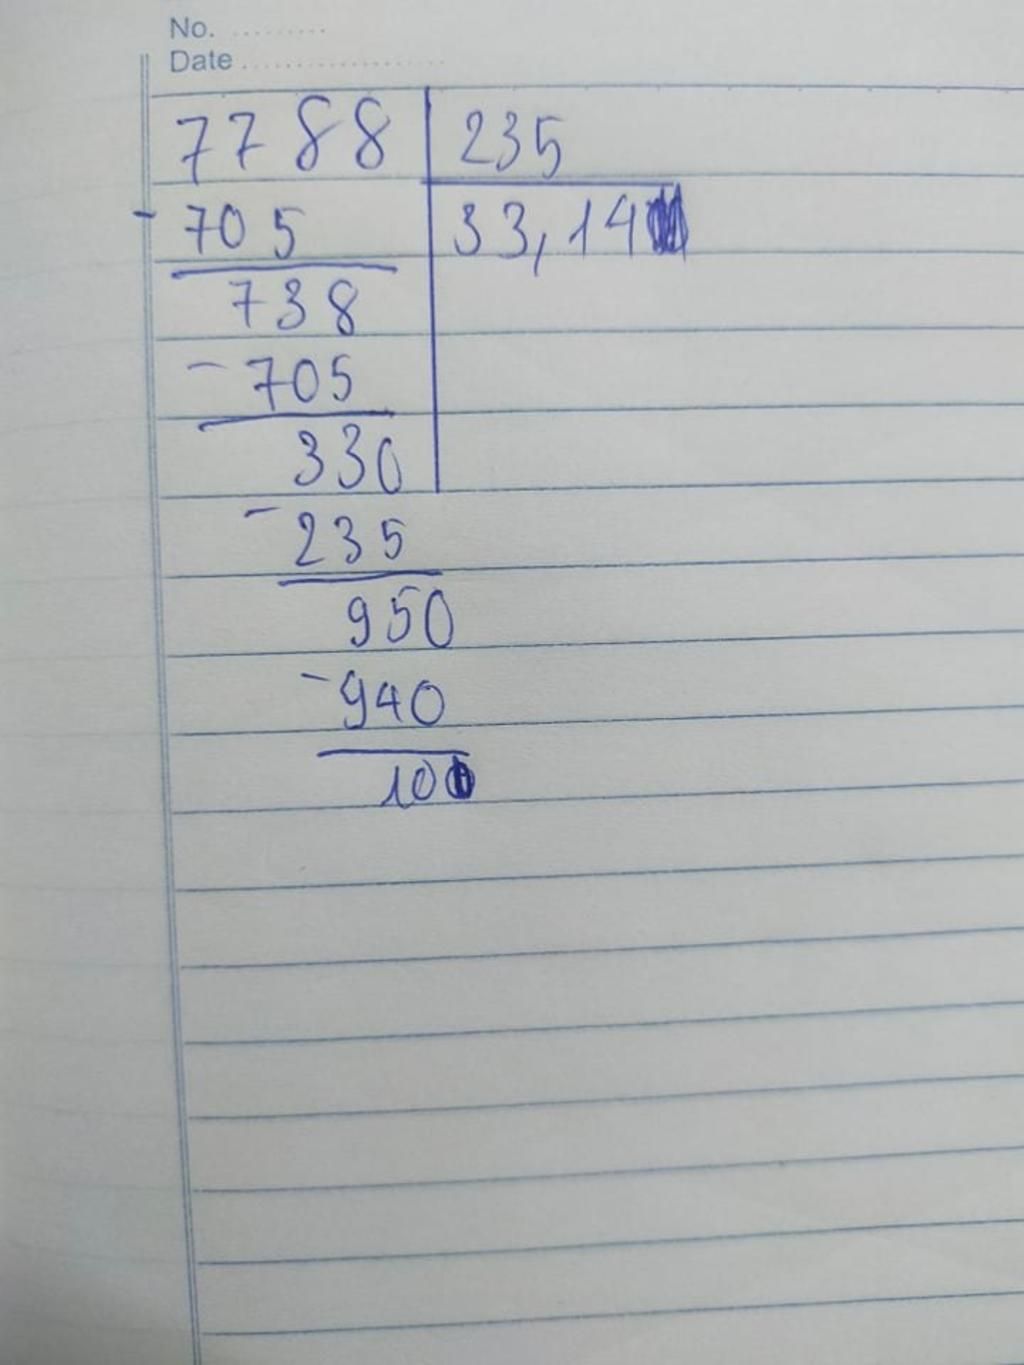 No. .........
Date ....................
7788 235
- 705 33,14
738
- 705
330
- 235
950
- 940
10